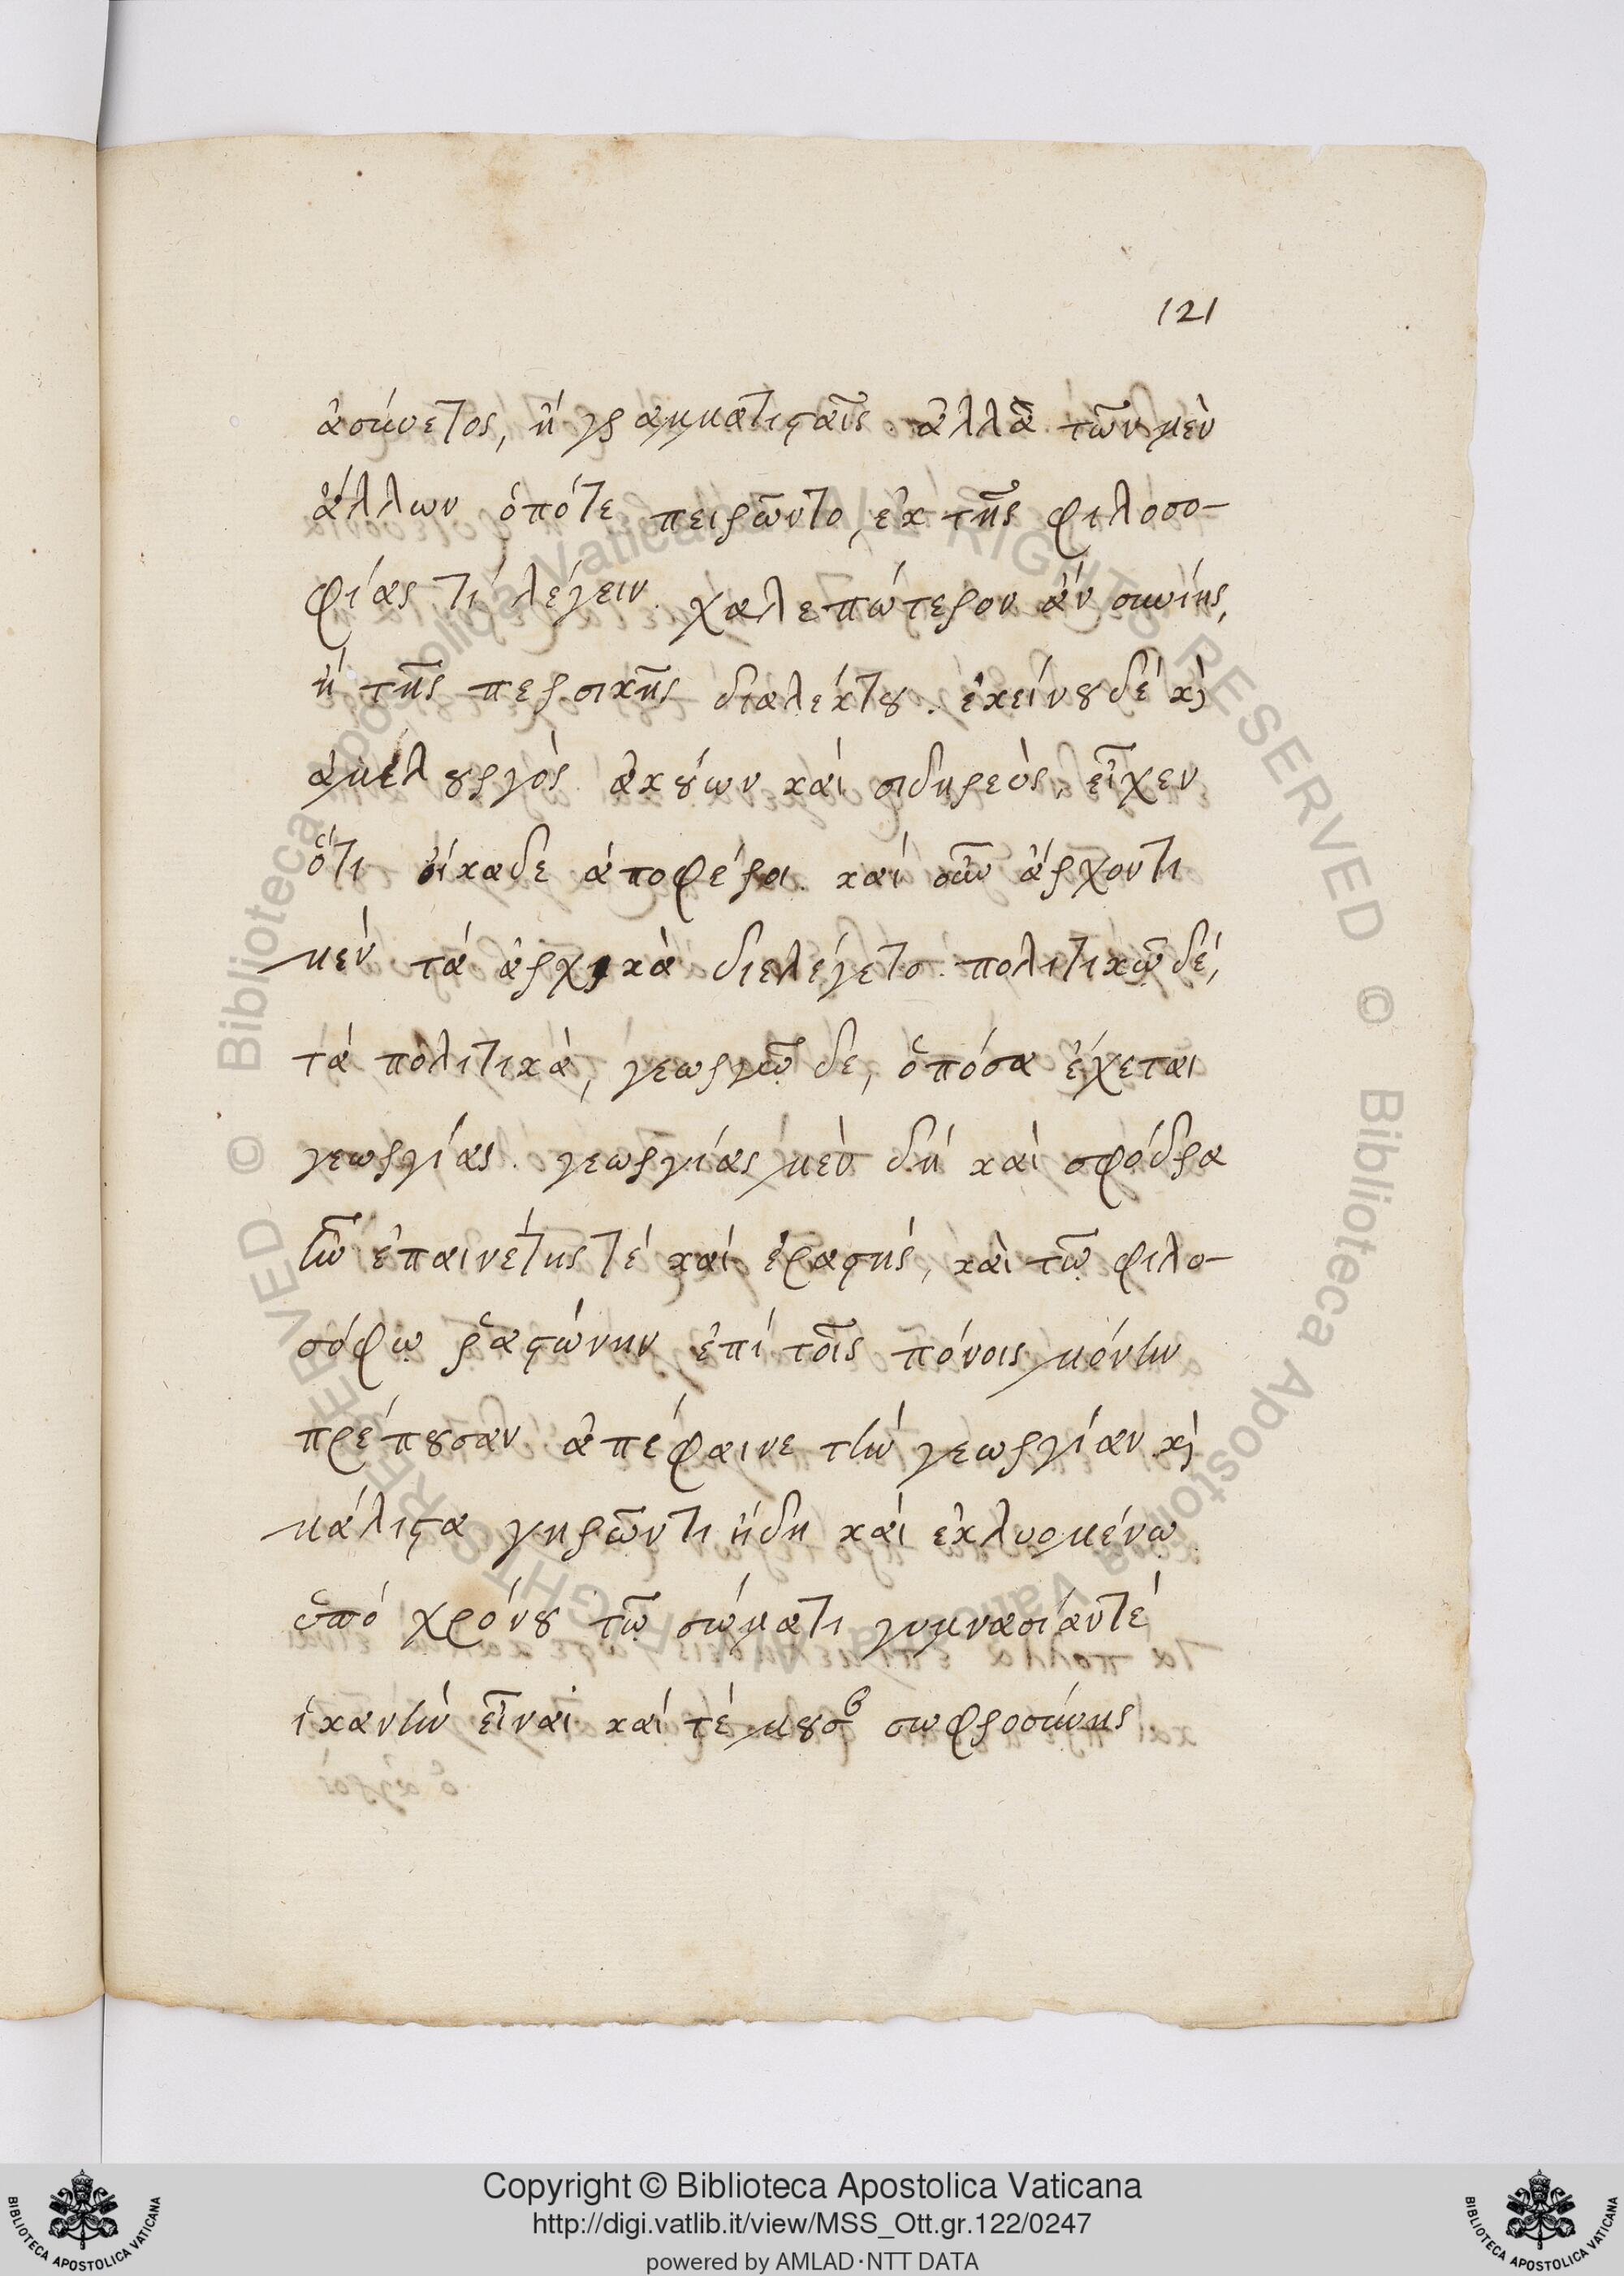 121
ἀσύνετος, ἢ γραμματιςαῖς. ἀλλὰ τῶν μὲν
ἄλλων ὁπότε πειρῶντο ἐκ τῆς φιλοσο-
φίας τί λέγειν. χαλεπώτερον ἄν συνίης,
ἢ τῆς περσικῆς διαλέκτου. ἐκείνου δέ κὶ
ἀμελουργὸς ἀκούων καὶ σιδηρεὺς, εἶχεν
ὅτι οἴκαδε ἀποφέροι. καὶ σὺν ἄρχοντι
μέν τά ἀρχικὰ διελέγετο. πολιτικῷ δέ,
τά πολιτικὰ, γεωργῷ δέ, ὁπόσα ἔχεται
γεωργίας. γεωργίας μὲν δή καὶ σφόδρα
ἦν ἐπαινέτης τέ καί ἐραςής, καὶ τῷ φιλο-
σόφῳ ῥαςώνην ἐπί τοῖς πόνοις μόνην
πρέπουσαν ἀπέφαινε τὴν γεωργίαν κὶ
μάλιςα γηρῶντι ἤδη καὶ ἐκλυομένῳ
ὑπό χρόνου τῷ σώματι γυμνασίαντέ
ἱκανὴν εἶναι καί τέ μουσ σωφροσύνης
Copyright © Biblioteca Apostolica Vaticana
http://digi.vatlib.it/view/MSS_Ott.gr.122/0247
powered by AMLAD·NTT DATA
BIBLIOTECA APOSTOLICA VATICANA
BIBLIOTECA APOSTOLICA VATICANA
© Biblioteca Apostolica Vaticana ALL RIGHTS RESERVED © Biblioteca Apostolica Vaticana ALL RIGHTS RESERVED